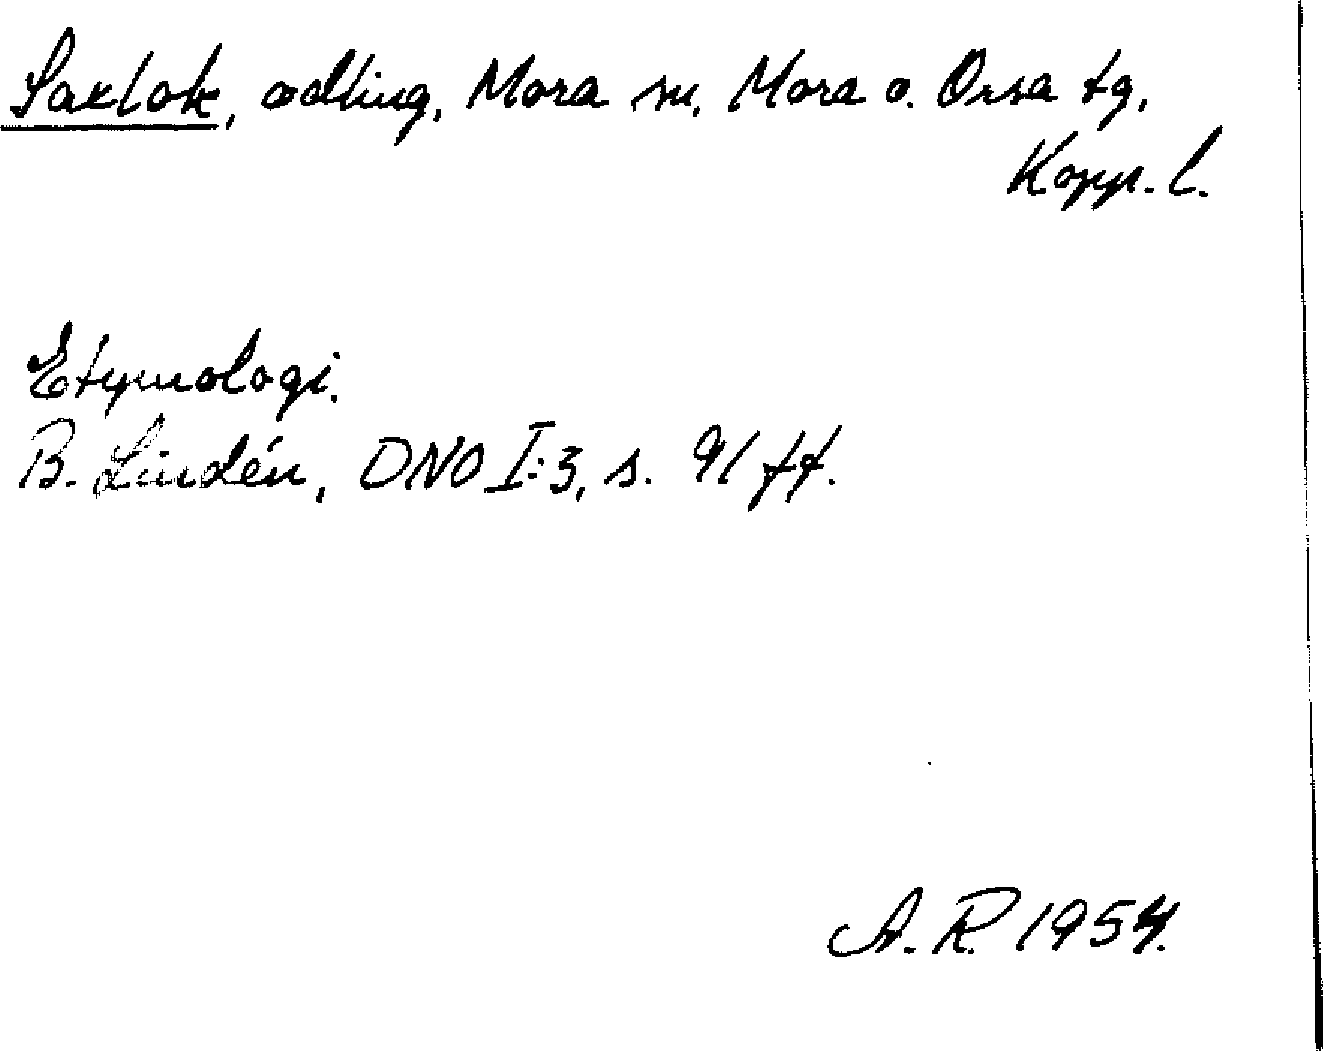 Saxlok, odling, Mora sn, Mora o. Orsa tg,
Kopp. l.
Etymologi.
B. Lindén, DNO I:3, s. 91 ff.
A. R. 1954.